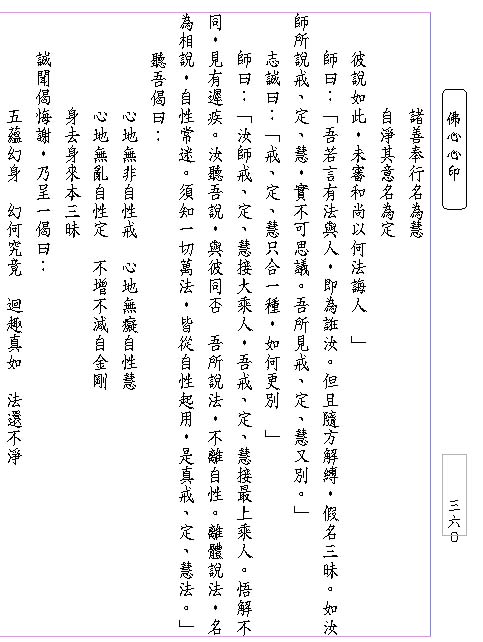 佛心心印
諸善奉行名為慧
自淨其意名為定
彼說如此，未審和尚以何法誨人　」
師曰：「吾若言有法與人，即為誑汝。但且隨方解縛，假名三昧。如汝
師所說戒、定、慧，實不可思議。吾所見戒、定、慧又別。」
志誠曰：「戒、定、慧只合一種，如何更別　」
師曰：「汝師戒、定、慧接大乘人，吾戒、定、慧接最上乘人。悟解不
同，見有遲疾。汝聽吾說，與彼同否　吾所說法，不離自性。離體說法，名
為相說，自性常迷。須知一切萬法，皆從自性起用，是真戒、定、慧法。」
聽吾偈曰：
心地無非自性戒　心地無癡自性慧
心地無亂自性定　不增不減自金剛
身去身來本三昧
誠聞偈悔謝，乃呈一偈曰：
五蘊幻身　幻何究竟　迴趣真如　法還不淨
三六０